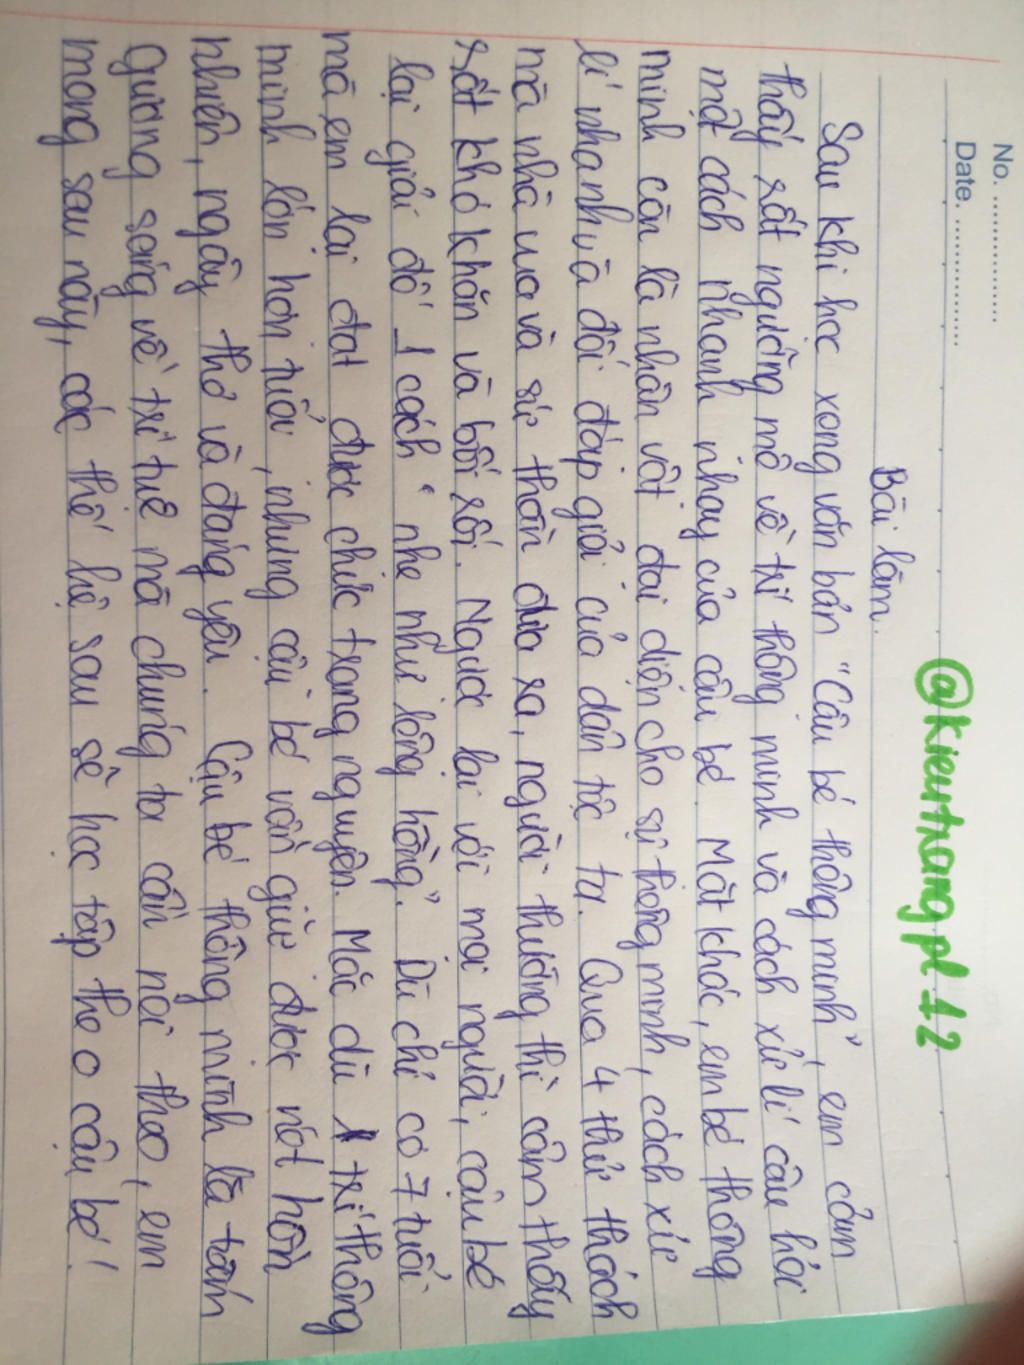 No. ................
Date. ................
@kieutrangpl 42
Bài làm.
Sau khi học xong văn bản "Cậu bé thông minh", em cảm
thấy rất ngưỡng mộ về trí thông minh và cách xử lí câu hỏi
một cách nhanh nhạy của cậu bé. Mặt khác, em bé thông
minh còn là nhân vật đại diện cho sự thông minh, cách xử
lí nhanh và đối đáp giỏi của dân tộc ta. Qua 4 thử thách
mà nhà vua và sứ thần đưa ra, người thường thì cảm thấy
rất khó khăn và bối rối. Ngược lại với mọi người, cậu bé
lại giải đố 1 cách "nhẹ như lông hồng". Dù chỉ có 7 tuổi
mà em lại đạt được chức trạng nguyên. Mặc dù trí thông
minh lớn hơn tuổi, nhưng cậu bé vẫn giữ được nét hồn
nhiên, ngây thơ và đáng yêu. Cậu bé thông minh là tấm
gương sáng về trí tuệ mà chúng ta cần noi theo, em
mong sau này, các thế hệ sau sẽ học tập theo cậu bé!